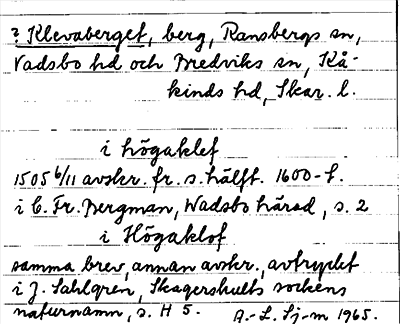 ? Klevaberget, berg, Ransbergs sn,
Vadsbo hd och Bredviks sn, Kå-
kinds hd, Skar. l.
i högaklef
1505 6/11 avskr. fr. s. hälft. 1600-t.
i C. Fr. Bergman, Wadsbo härad, s. 2
i Högaklof
samma brev, annan avskr., avtryckt
i J. Sahlgren, Skagershults sockens
naturnamn, s. H 5. A.-L. Sj-m 1965.